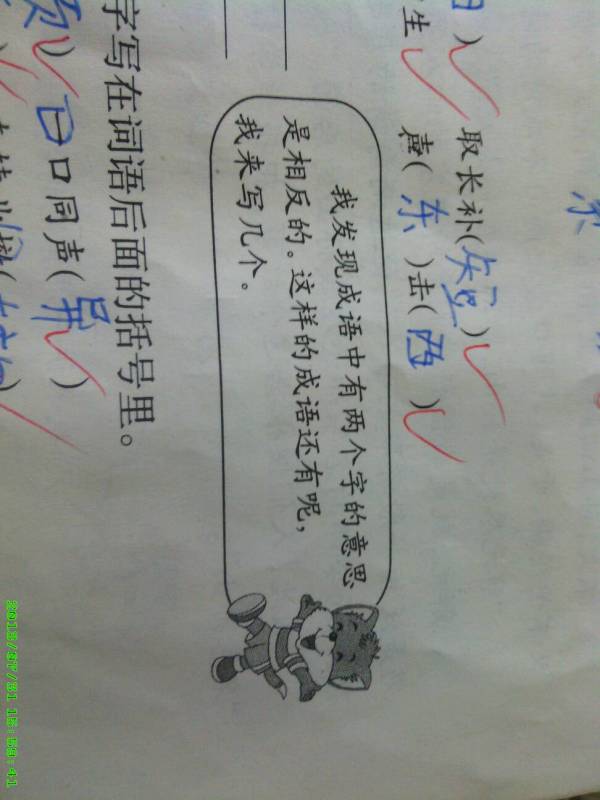 取长补(短)
生 声(东)击(西)
我发现成语中有两个字的意思
是相反的。这样的成语还有呢,
我来写几个。
字写在词语后面的括号里。
口同声(异)